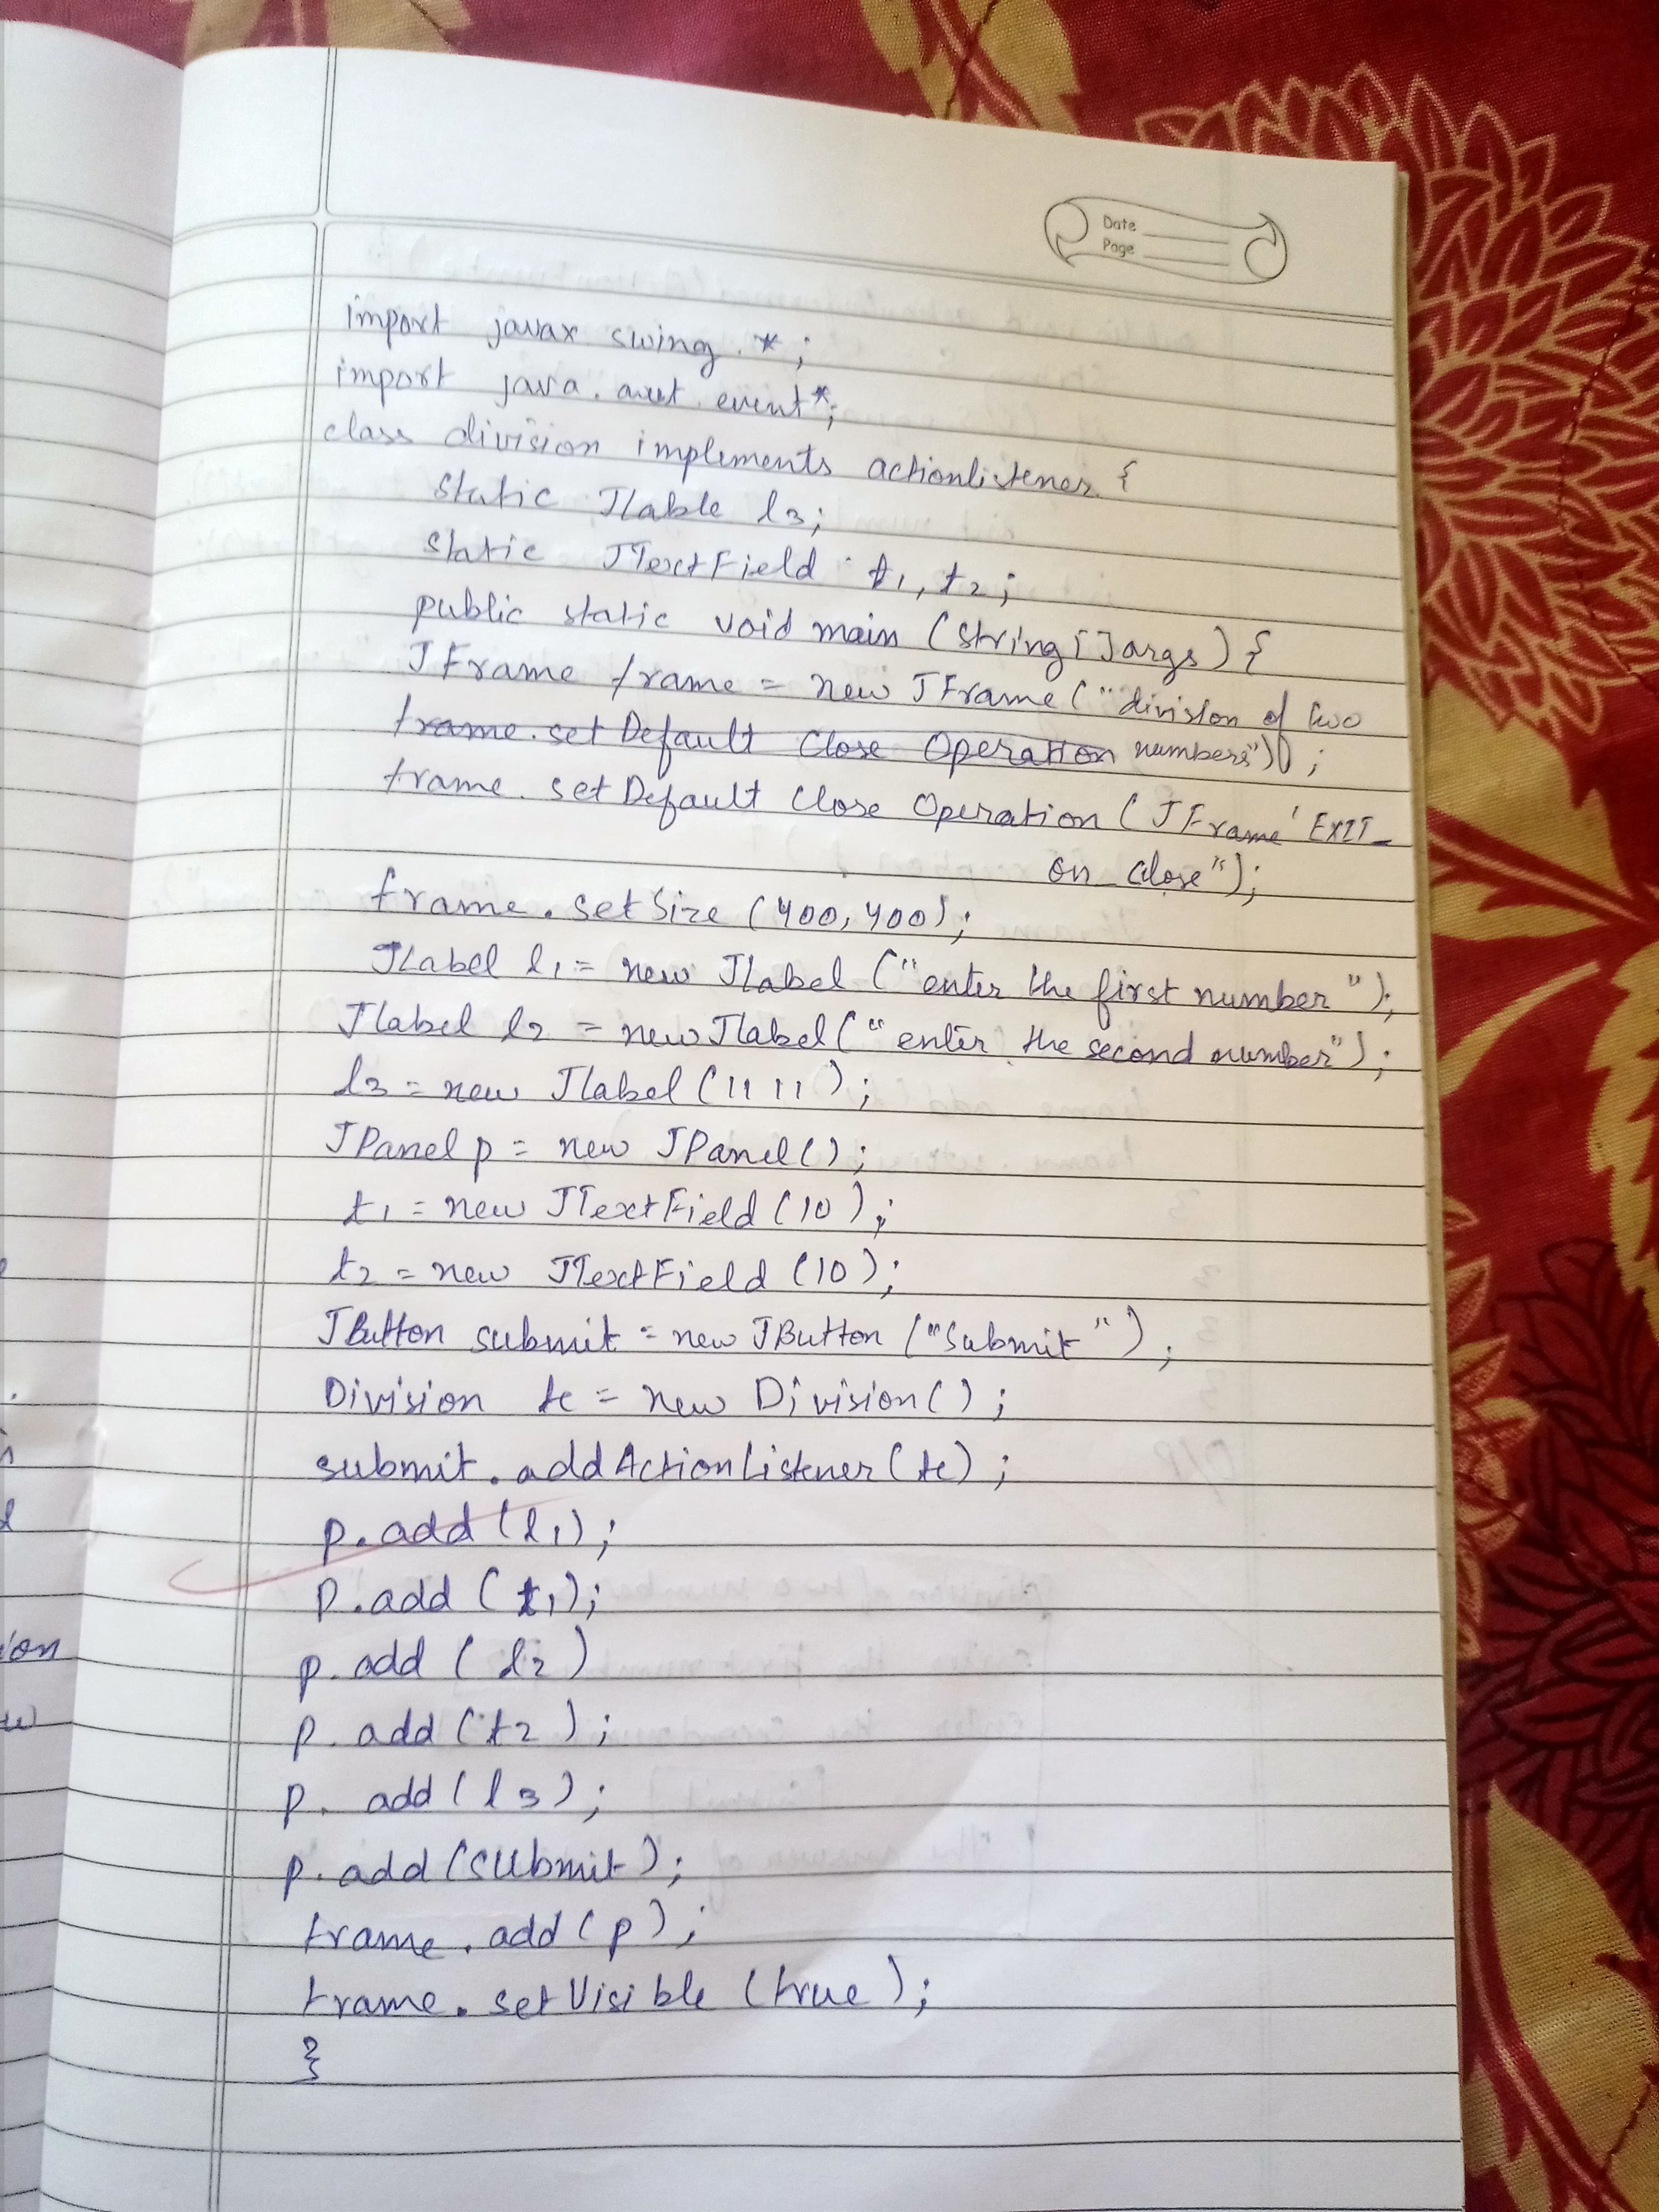 Date
Page
import javax swing . *;
import java . awt . event*;
class division implements actionlistener {
static Jlable l3;
static JTextField t1, t2;
public static void main (string [] args) {
JFrame frame = new JFrame ("division of two
frame.set Default Close Operation numbers");
frame. set Default Close Operation (JFrame' EXIT_
on_close");
frame.set Size (400, 400);
JLabel l1 = new Jlabel ("enter the first number");
Jlabel l2 = new Jlabel ("enter the second number");
l3 = new Jlabel (11 11);
JPanel p = new JPanel ();
t1 = new JTextField (10);
t2 = new JTextField (10);
JButton submit = new JButton ("Submit");
Division tc = new Division ();
submit.addActionListener (tc);
p.add (l1);
p.add (t1);
p.add (l2)
p.add (t2);
p. add (l3);
p.add (submit);
frame.add (p);
frame.set Visible (true);
}
ion
w